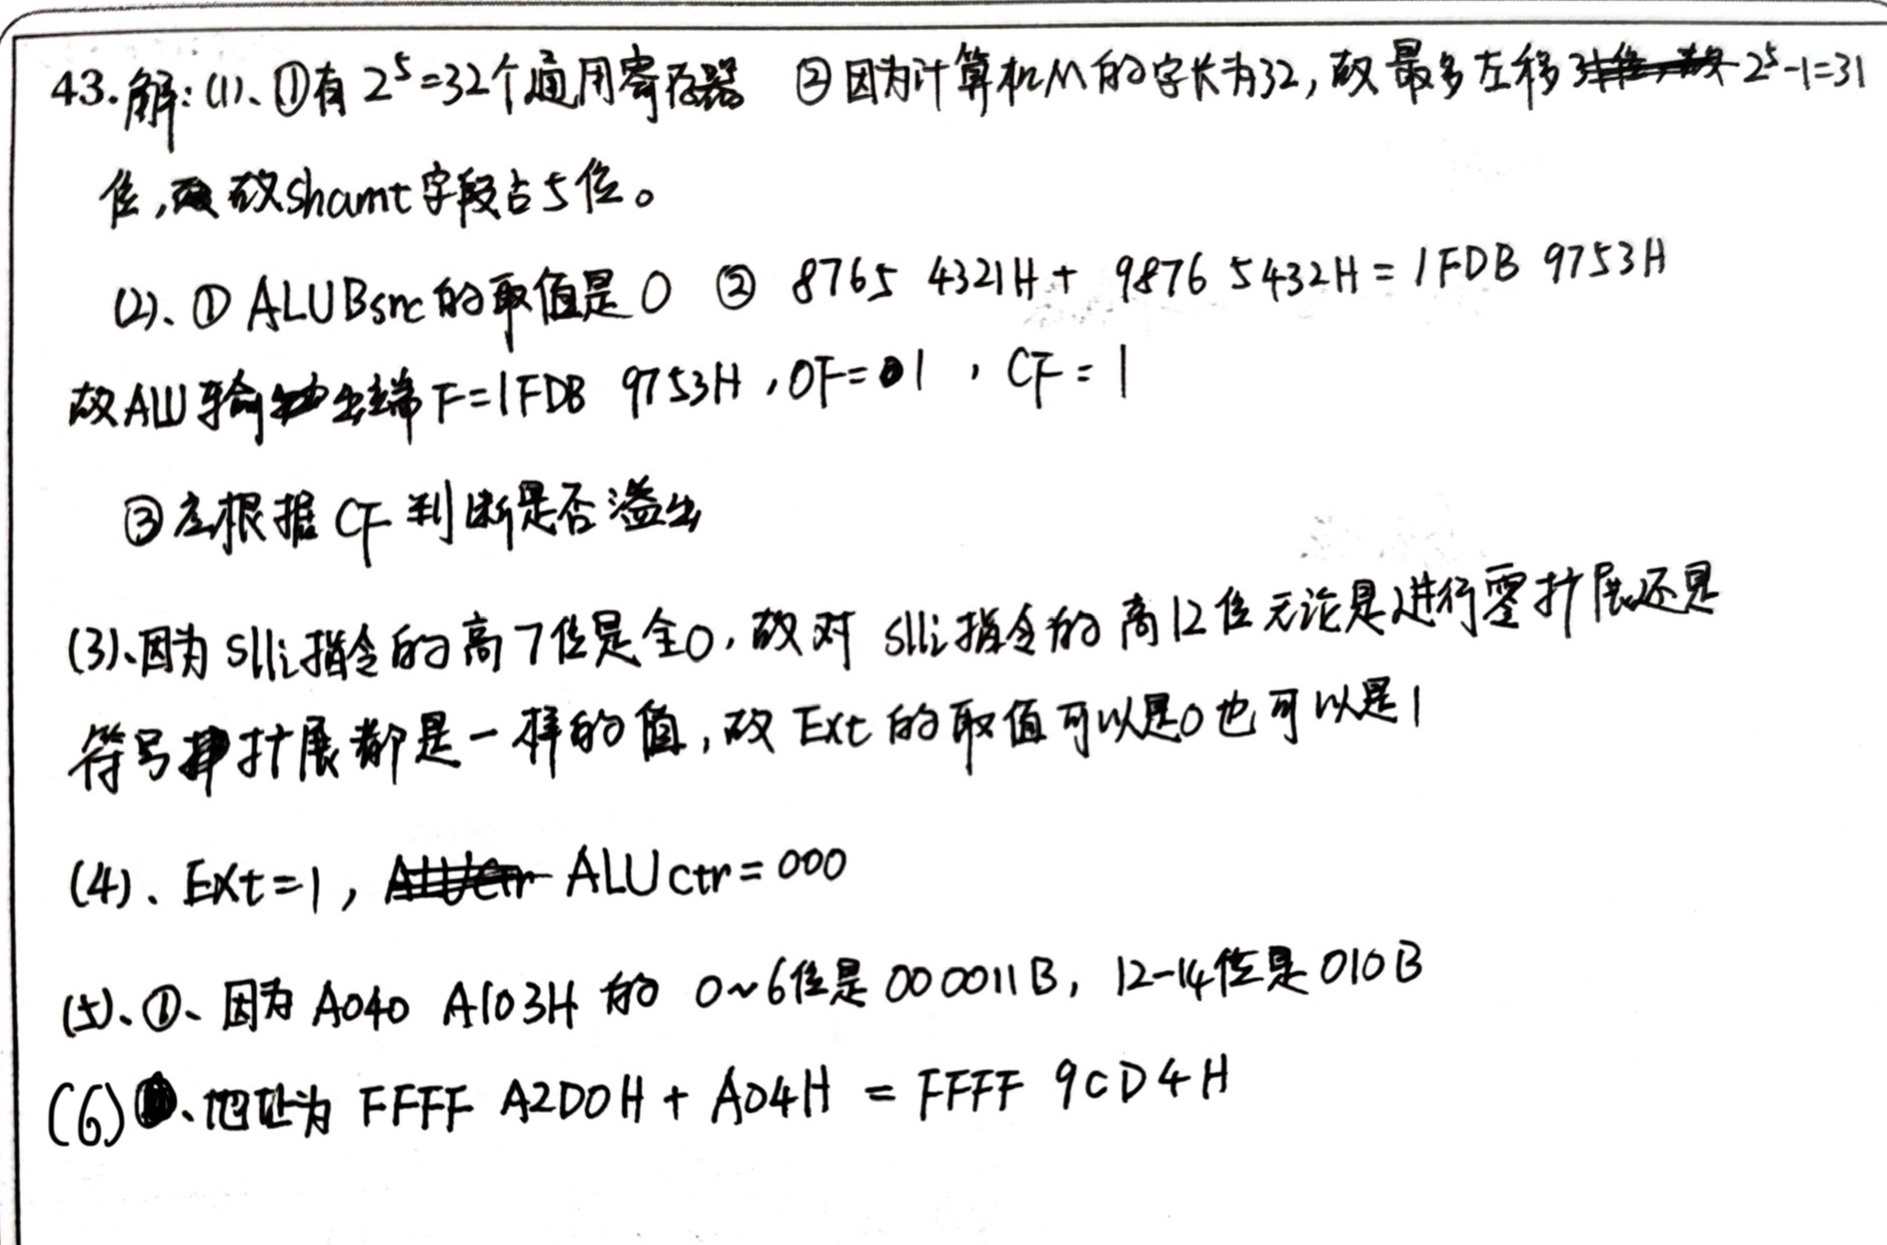 43.解:(1)、①有2⁵=32个通用寄存器 ②因为计算机M的字长为32,故最多左移2⁵-1=31
位,故shamt字段占5位。
(2)、①ALUBsrc的取值是0 ② 8765 4321H + 9876 5432H = 1FDB 9753H
故ALU输出端F=1FDB 9753H,OF=1,CF=1
③应根据CF判断是否溢出
(3)、因为slli指令的高7位是全0,故对slli指令的高12位无论是进行零扩展还是
符号扩展都是一样的值,故Ext的取值可以是0也可以是1
(4)、Ext=1, ALUctr=000
(5)、①、因为A040 A103H的 0~6位是000011B, 12-14位是010B
(6)、地址为FFFF A2D0H + A04H = FFFF 9CD4H